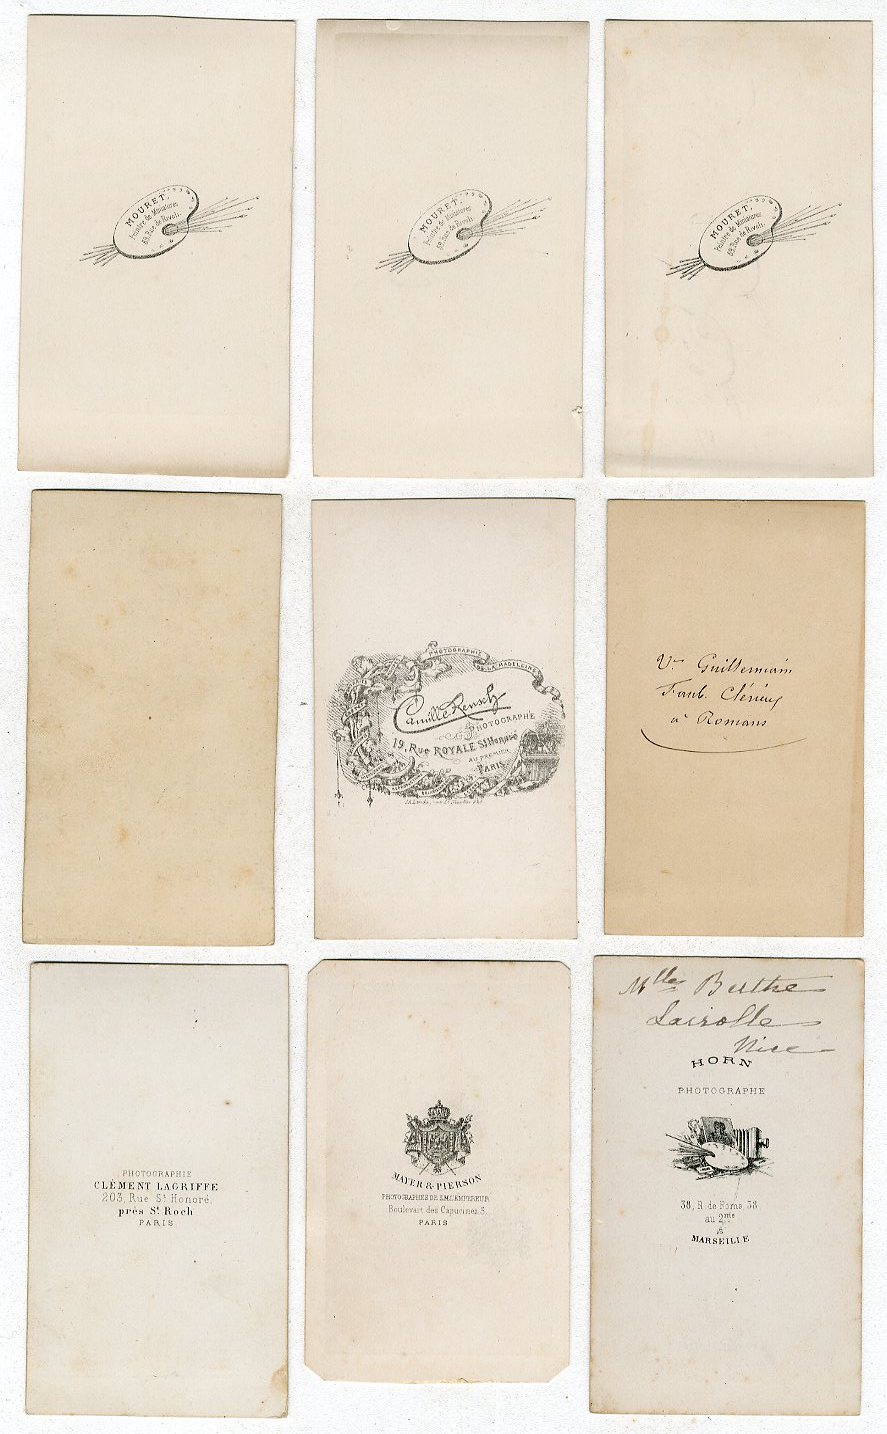 MOURET,
Peintre de Miniatures
89, Rue de Rivoli.
MOURET,
Peintre de Miniatures
89, Rue de Rivoli.
MOURET,
Peintre de Miniatures
89, Rue de Rivoli.
PHOTOGRAPHIE
DE LA MADELEINE
Camille Rensch
PHOTOGRAPHE
19, RUE ROYALE St HONORÉ
AU PREMIER
PARIS
Vve Guillermain
Faub. Clérieux
à Romans
PHOTOGRAPHIE
CLÉMENT LAGRIFFE
203, Rue St Honoré,
près St Roch
PARIS
MAYER & PIERSON
PHOTOGRAPHES DE S.M. L'EMPEREUR
Boulevart des Capucines 3,
PARIS
Mlle Berthe
Lairolle
Nice
HORN
PHOTOGRAPHE
38, R. de Rome, 38
au 2me
à
MARSEILLE